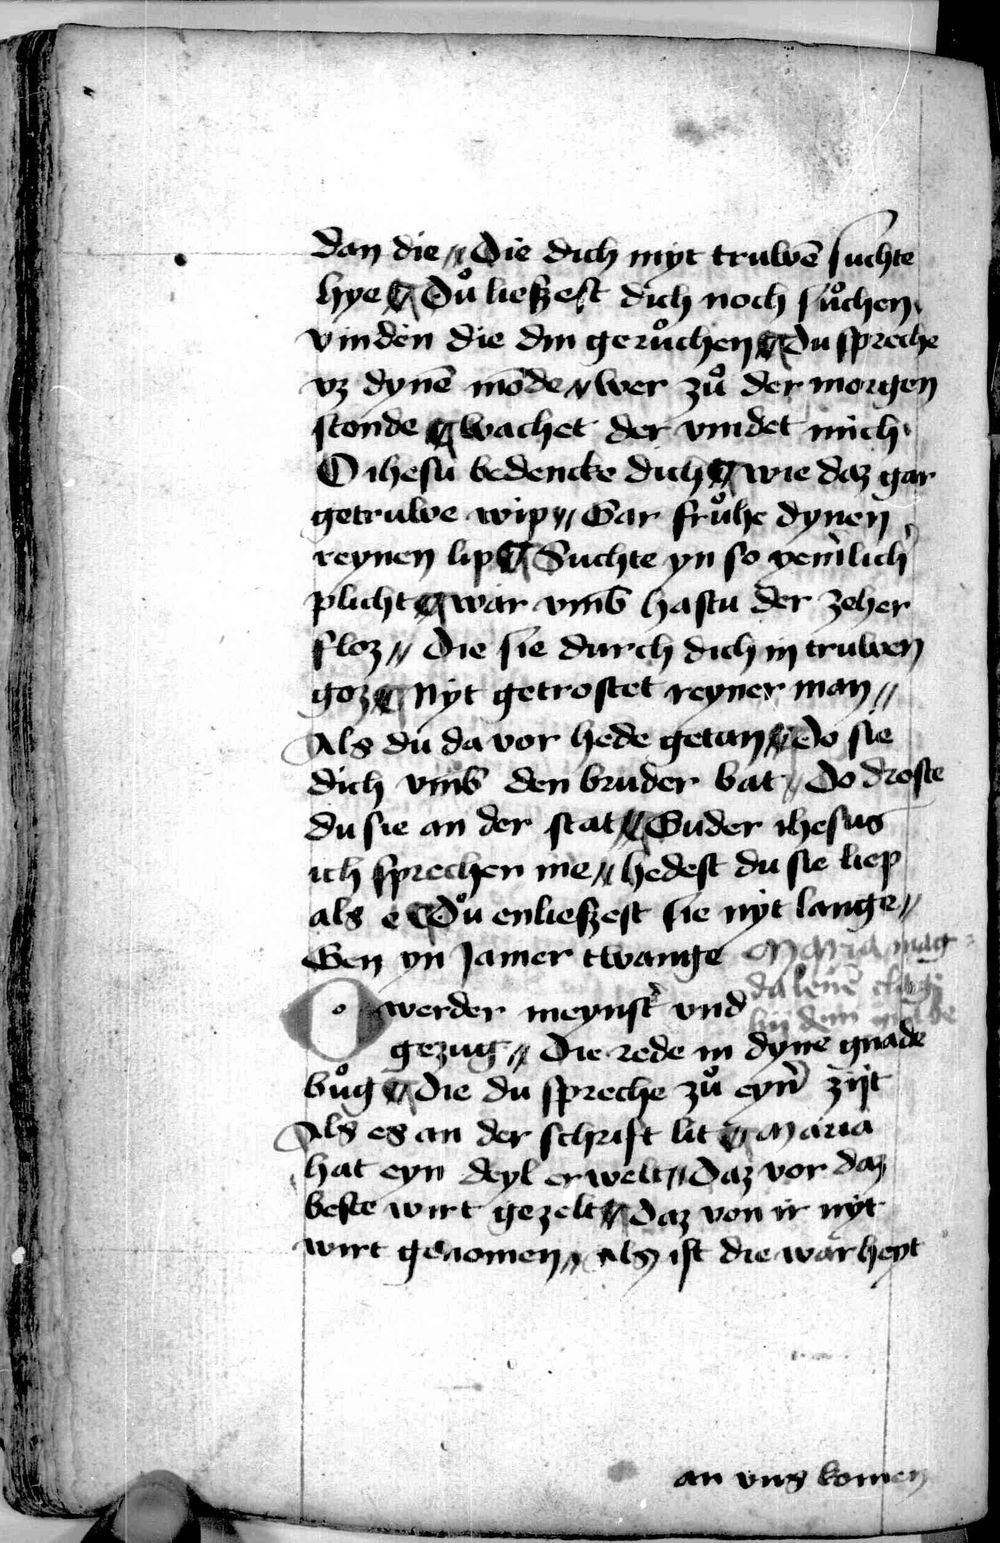 dan die // Die dich myt truwē suchte
hye ¶ Dů lieſzest dich noch sůchen
vinden die din gerůchen ¶ Du spreche
vz dynē mōde // wer zů der morgen
stonde ¶ wachet der vindet mich
O ihesu bedencke dich ¶ wie daz gar
getruwe wip // Gar frůhe dynen
reynen lip ¶ Suchte yn so
plicht ¶ war vmb hastu der zeher
floz // Die sie durch dich in truwen
goz ¶ nyt getrostet reyner man //
Als du da vor hede getan // Do sie
dich vmb den bruder bat // Do droste
du sie an der stat // Guder ihesus
ich sprechen me // hedest du sie liep
als e ¶ Dů enlieſzest sie nyt lange //
Gen yn Jamer twange Maria mag
dalenē clage
O werder meynst' vnd
gezug // Die rede in dyne gnade
bůg ¶ Die du spreche zů eyn' zijt
Als es an der schrift lit ¶ Maria
hat eyn deyl erwelt // Daz vor daz
beste wirt gezelt // Daz von ir nyt
wirt genomen // Als ist die warheyt
an vns komen